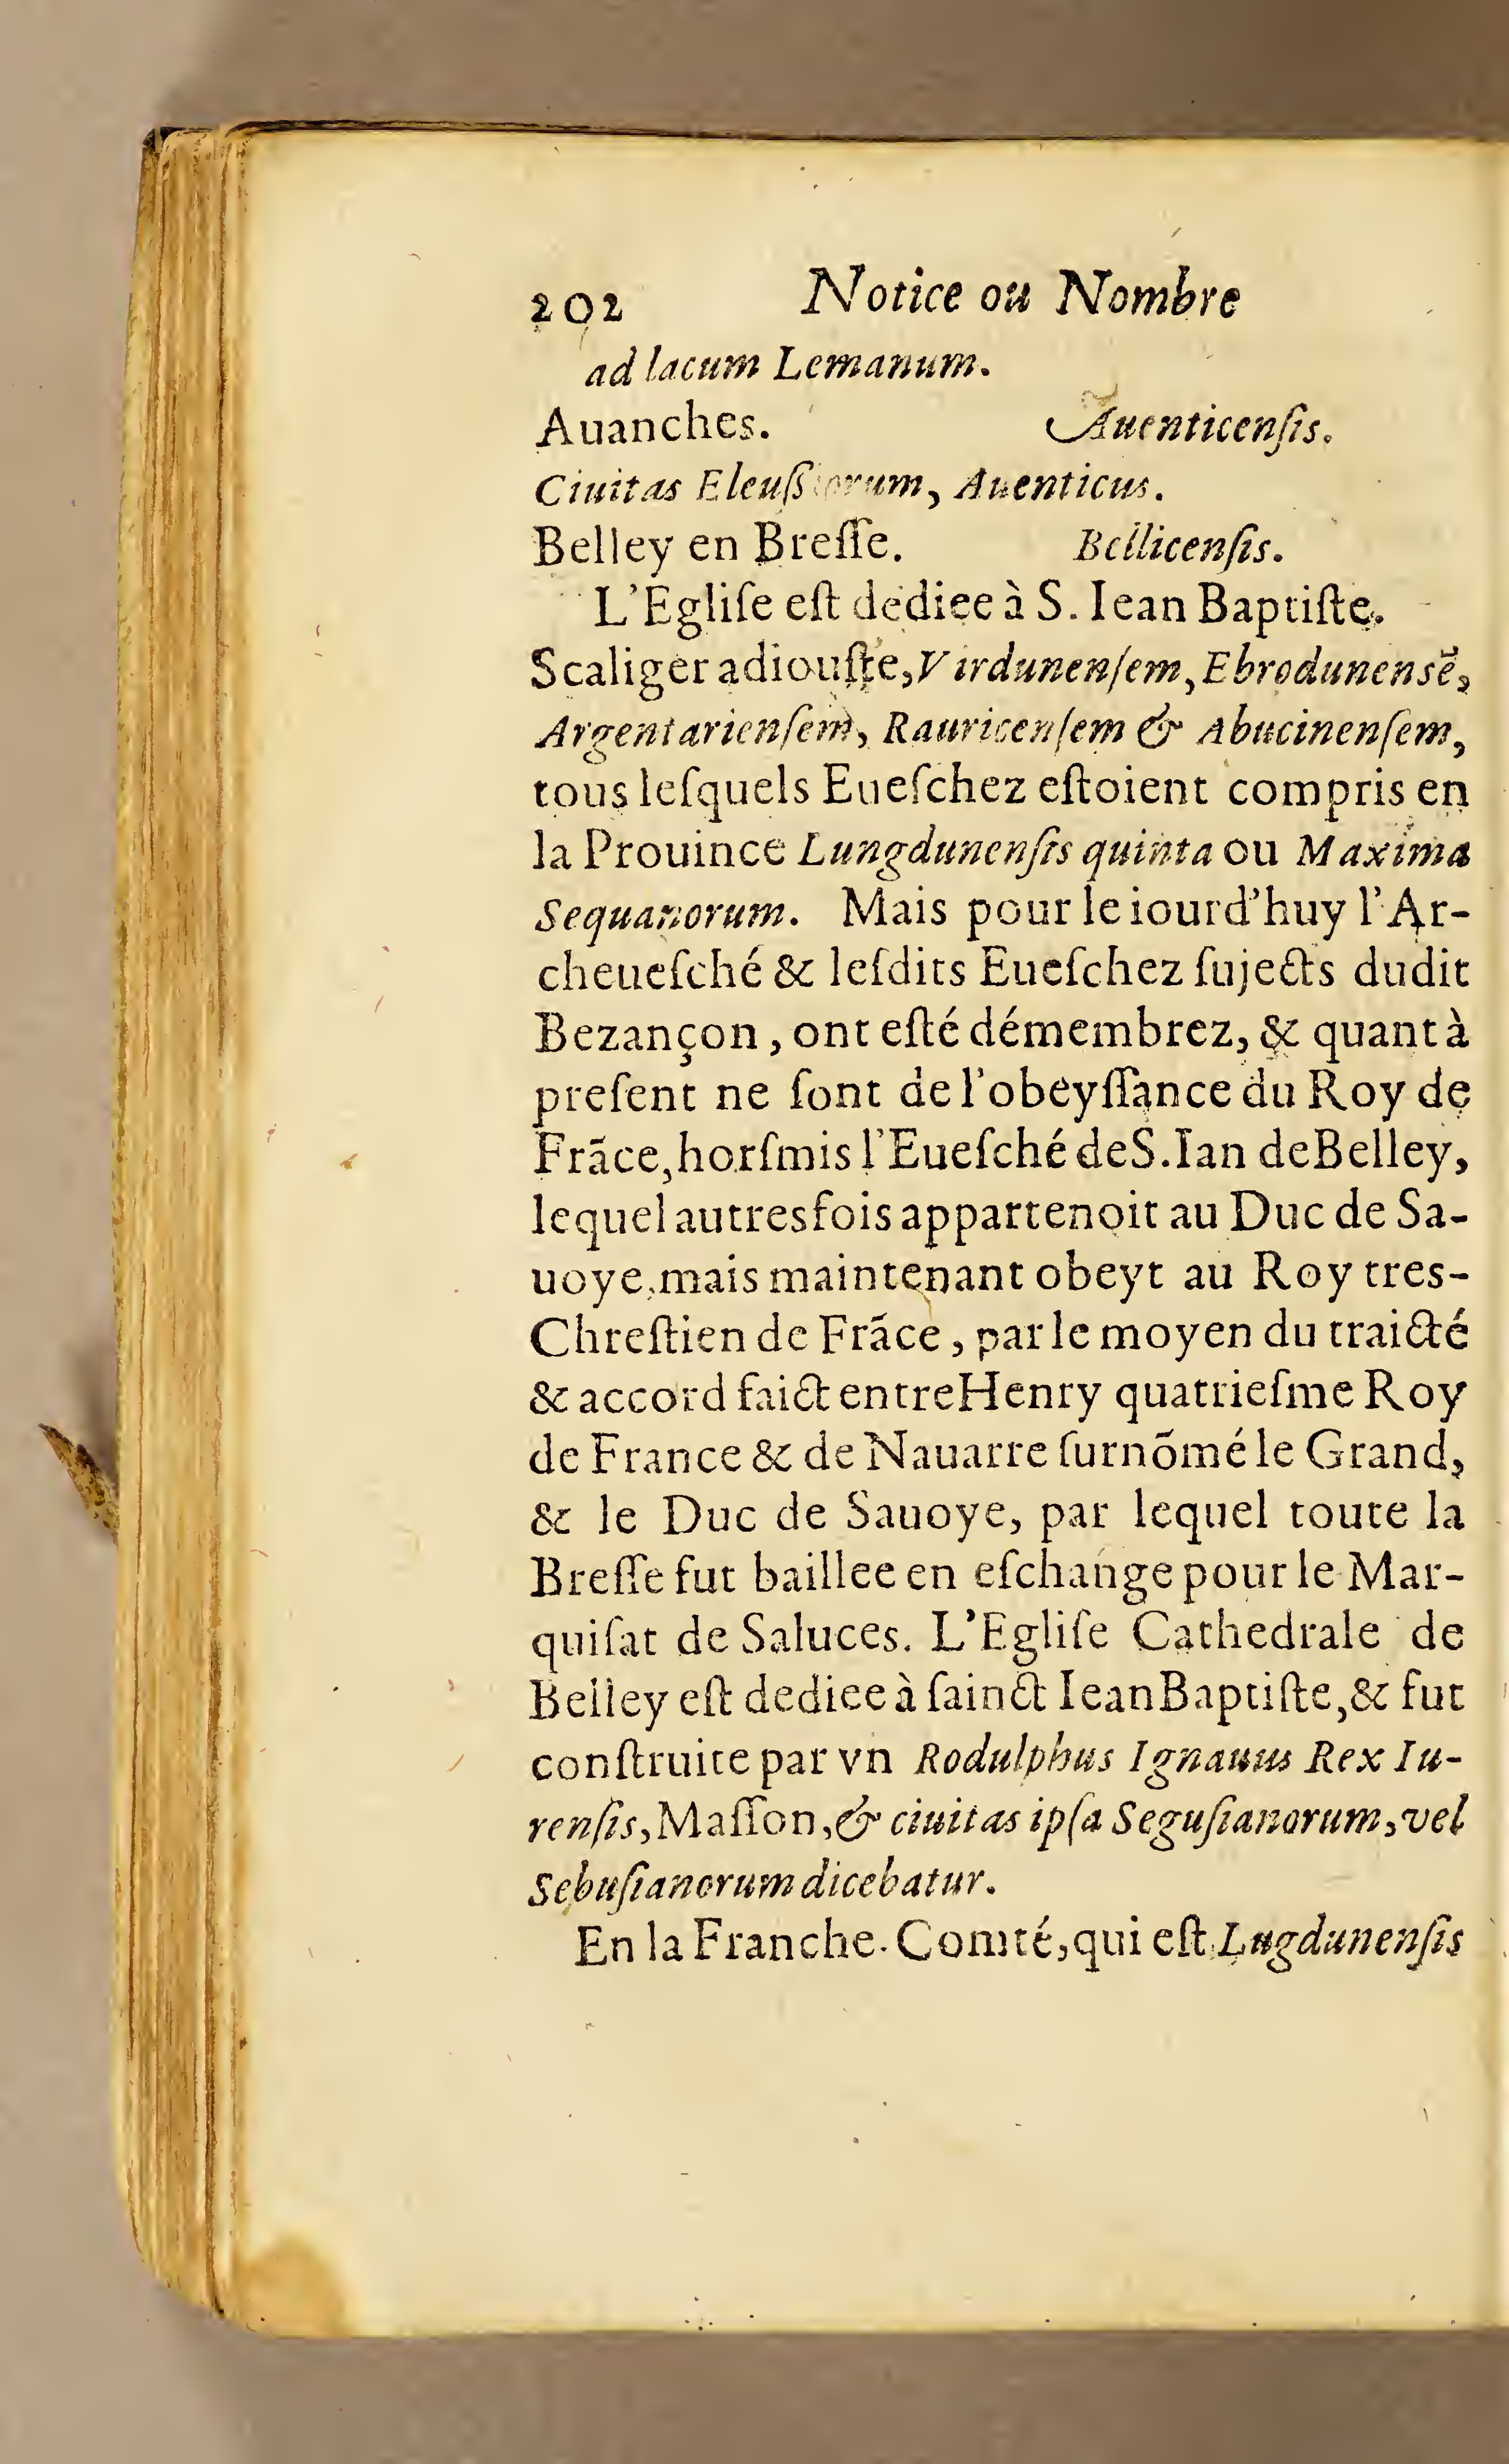 202 Notice ou Nombre
ad lacum Lemanum.
Auanches. Auenticensis.
Ciuitas , Auenticus.
Belley en Breſſe. Bellicenſis.
L'Egliſe eſt dediee à S. Iean Baptiſte.
Scaliger adiouſte, Virdunenſem, Ebrodunensē,
Argentarienſem, Rauricenſem & Abucinenſem,
tous leſquels Eueſchez eſtoient compris en
la Prouince Lungdunenſis quinta ou Maxima
Sequanorum. Mais pour le iourd'huy l'Ar-
cheueſché & leſdits Eueſchez ſujects dudit
Bezançon, ont eſté démembrez, & quant à
preſent ne ſont de l'obeyſſance du Roy de
Frãce, horſmis l'Eueſché de S. Ian de Belley,
lequel autresfois appartenoit au Duc de Sa-
uoye, mais maintenant obeyt au Roy tres-
Chreſtien de Frãce, par le moyen du traicté
& accord faict entre Henry quatrieſme Roy
de France & de Nauarre ſurnõmé le Grand,
& le Duc de Sauoye, par lequel toute la
Breſſe fut baillee en eſchange pour le Mar-
quiſat de Saluces. L'Egliſe Cathedrale de
Belley eſt dediee à ſainct Iean Baptiſte, & fut
conſtruite par vn Rodulphus Ignauus Rex Iu-
renſis, Maſſon, & ciuitas ipſa Seguſianorum, vel
Sebuſianorum dicebatur.
En la Franche-Comté, qui eſt Lugdunenſis